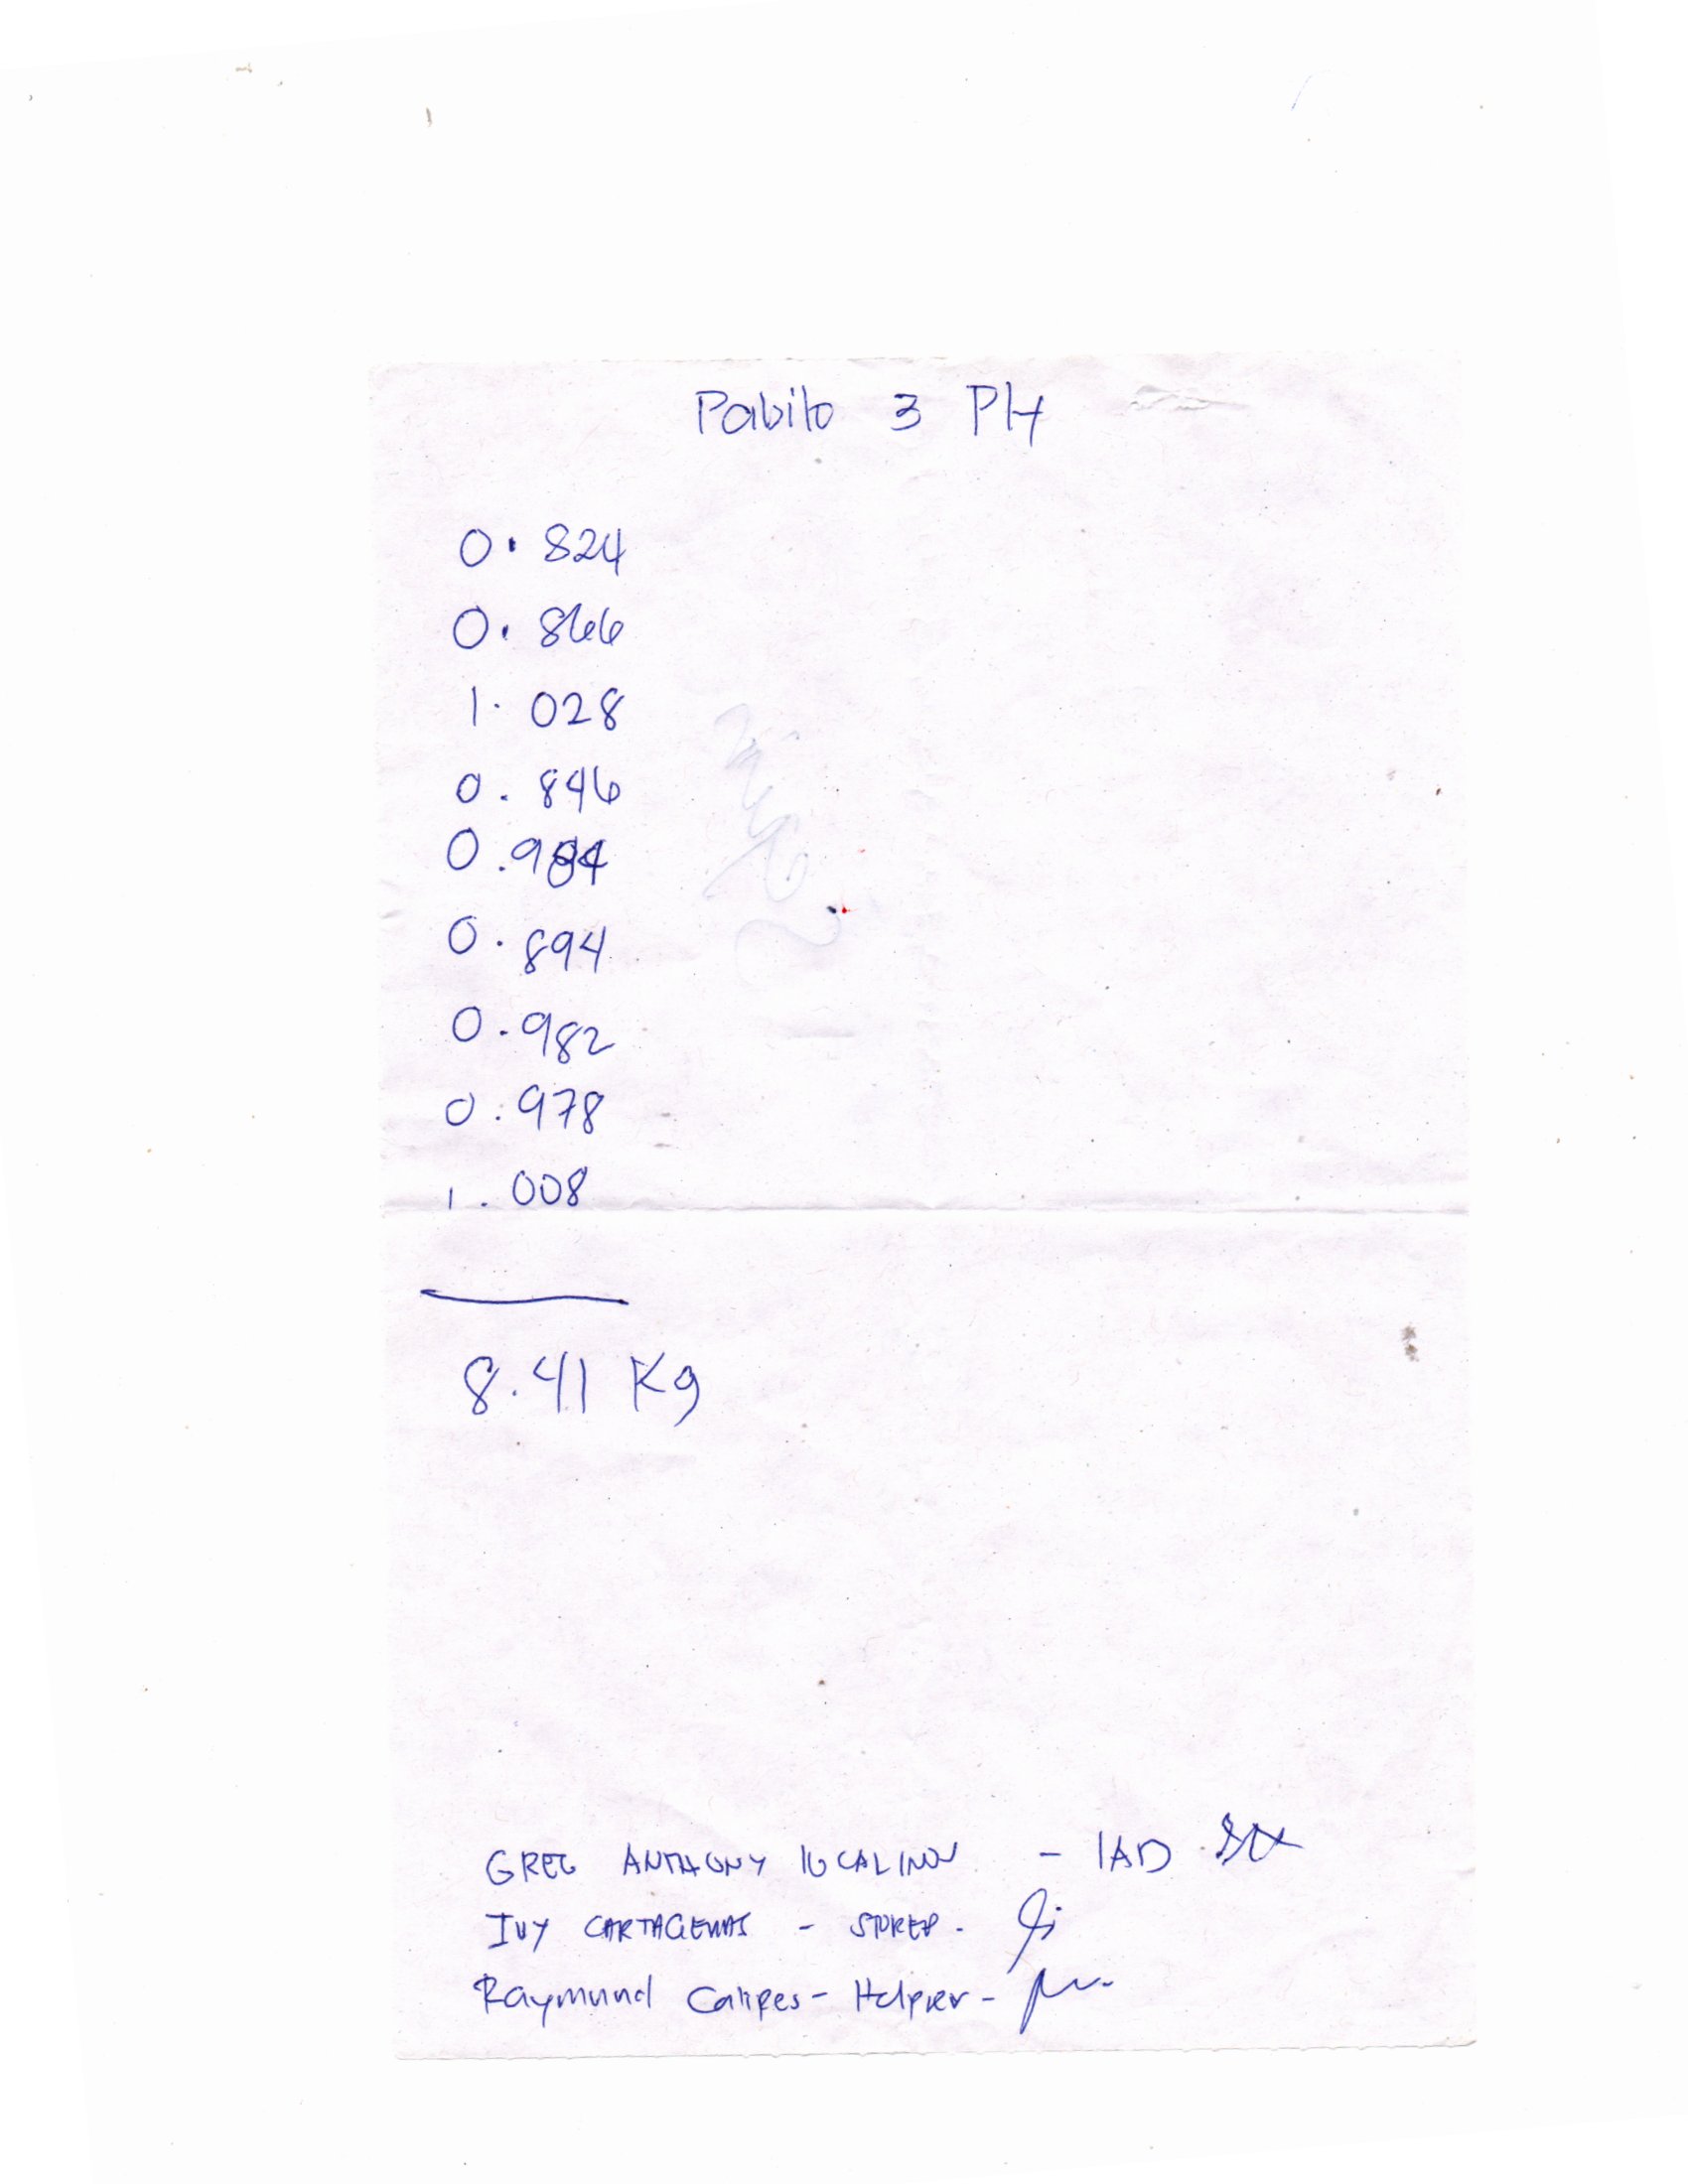 Pabilo 3 Ply
0.824
0.866
1.028
0.846
0.984
0.894
0.982
0.978
1.008
8.41 Kg
GREG ANTHONY - IAD
IVY CARTAGENAS -
Raymund - Helper -